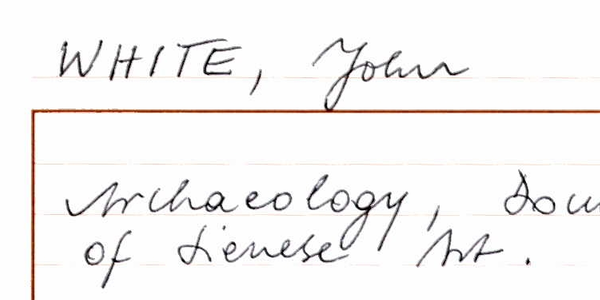 WHITE, John
Archaeology,
of Sienese Art.